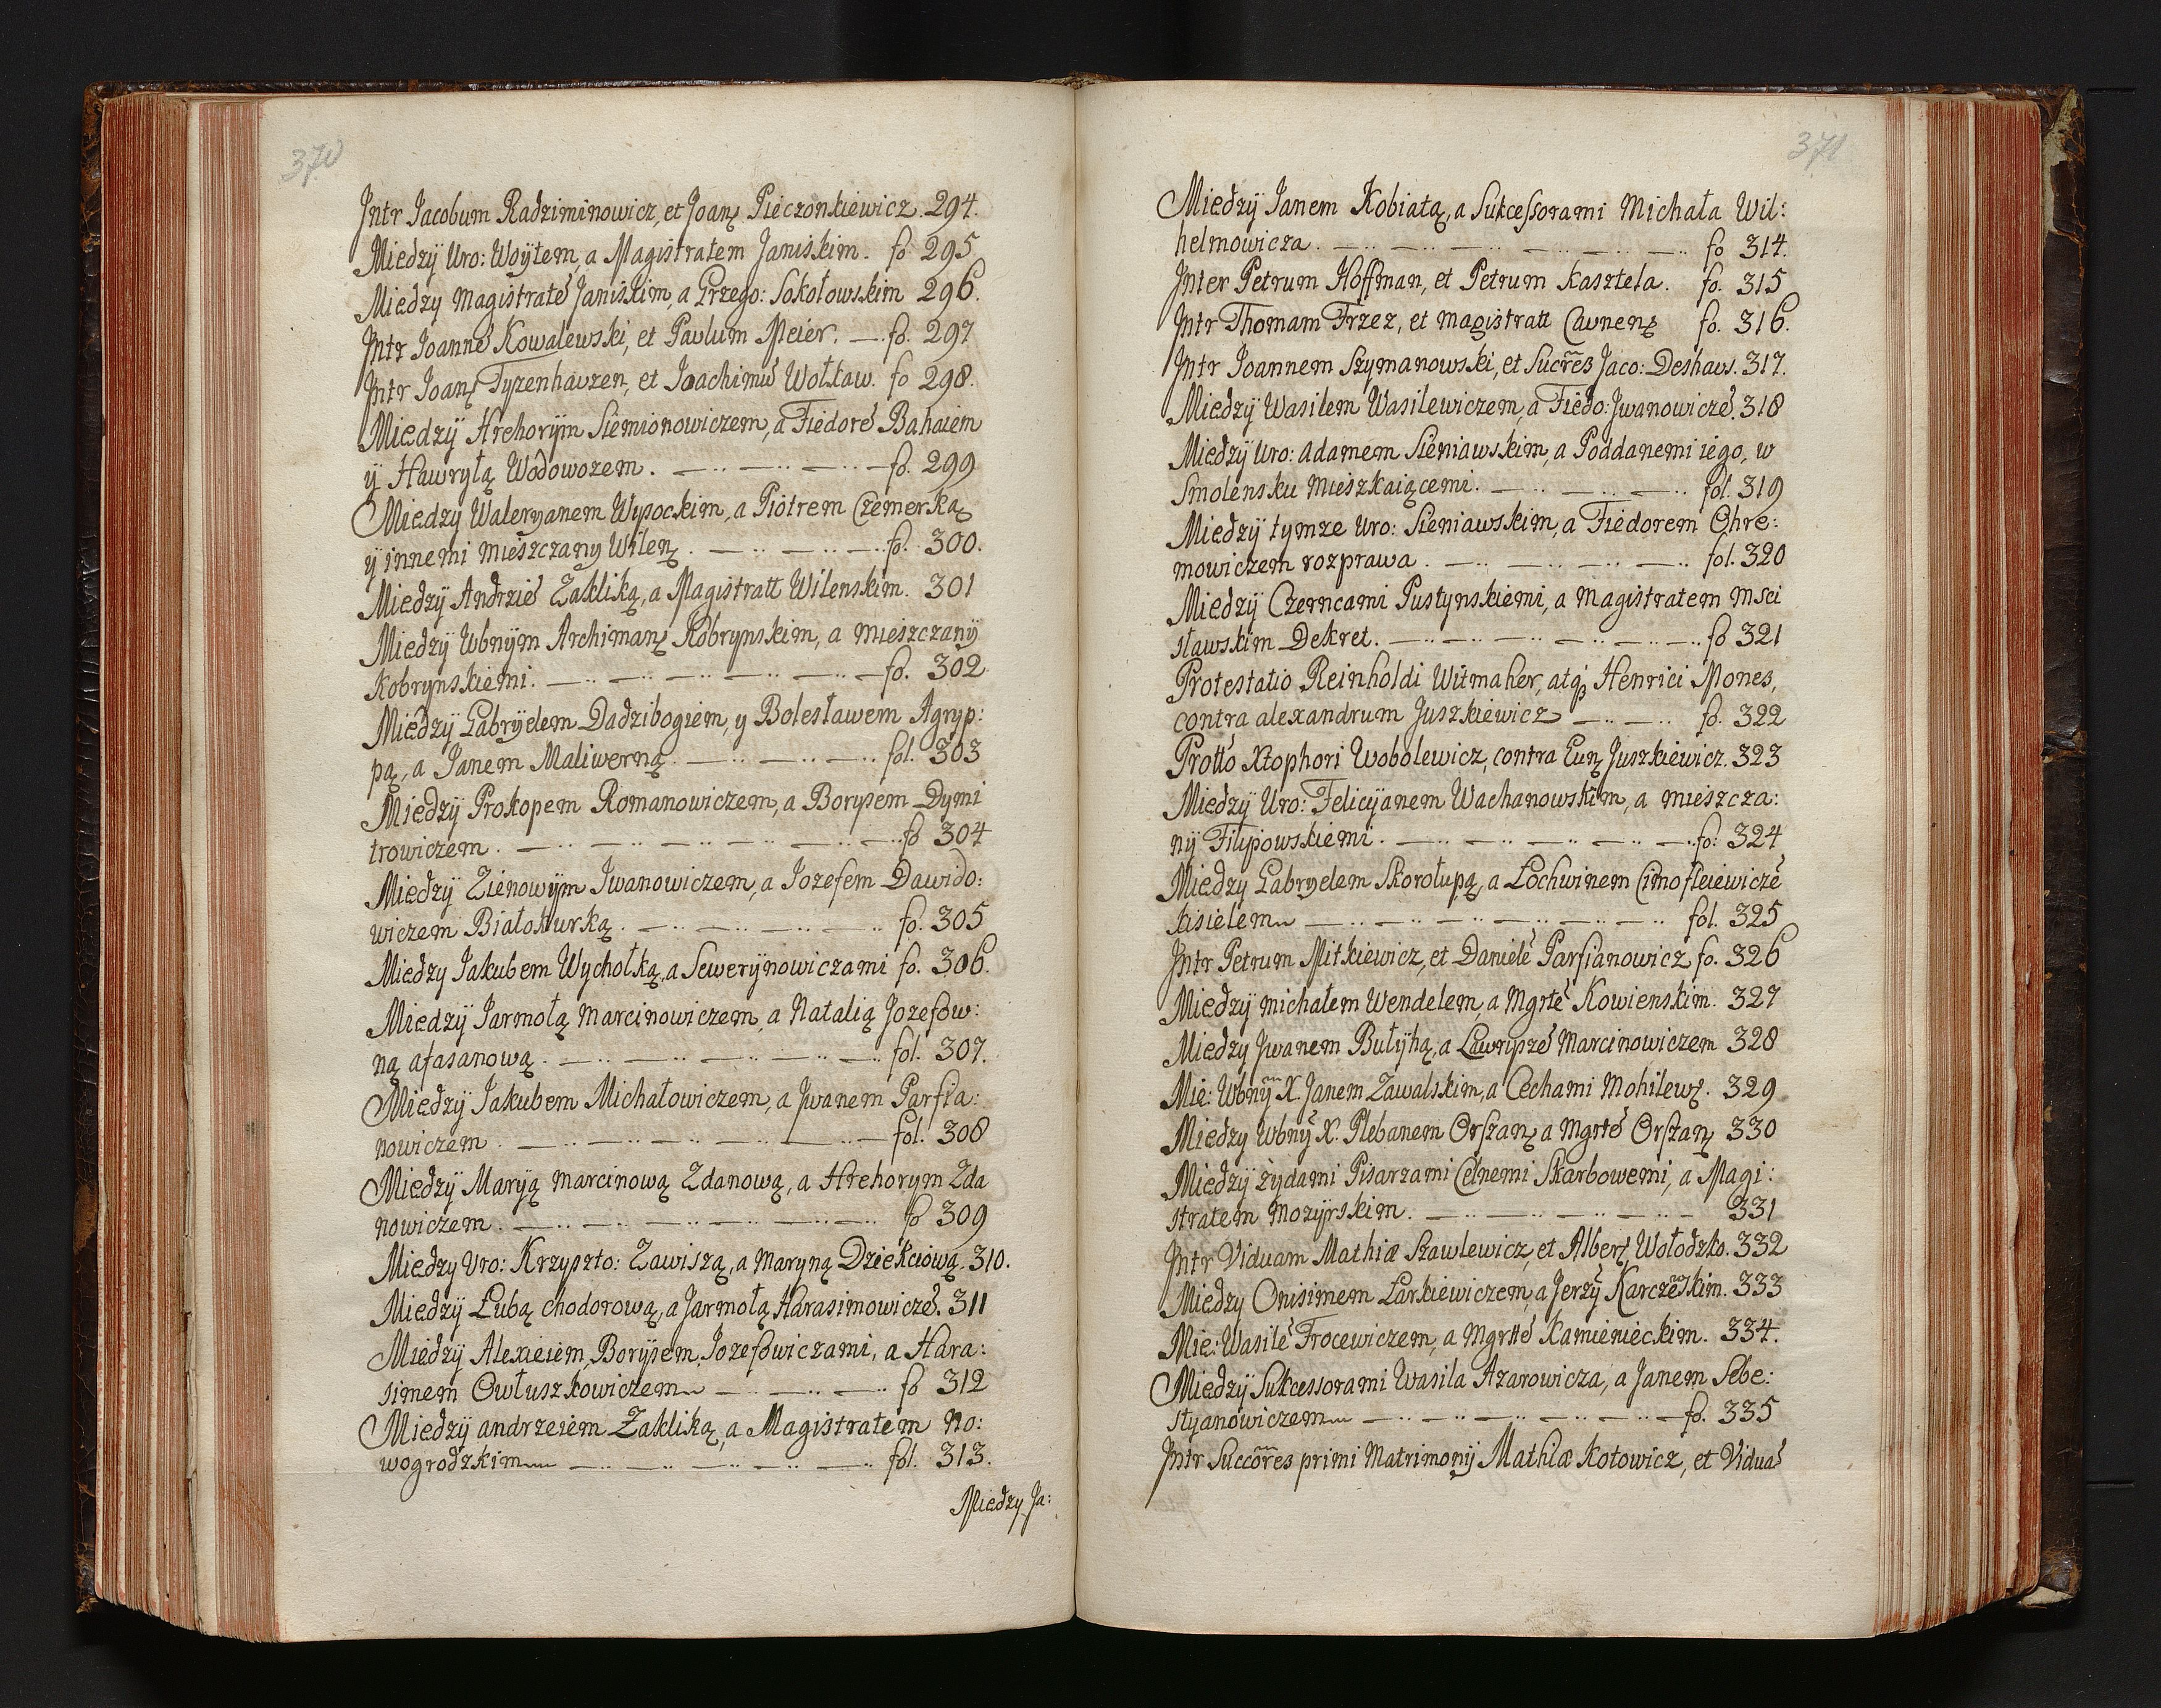 370
Jntr Jacobum Radziminowicz, et Joanȩ Pieczonkiewicz. 294.
Miedzÿ Uro: Woÿtem, a Magistratem Janiskim. fo 295
Miedzy Magistratē Janiskim, a Grzego: Sokołowskim 296.
Jntr Joannē Kowalewski, et Pavlum Meier. — fo. 297
Jntr Joanȩ Tyzenhauzen, et Joachimū Wołkaw. fo 298.
Miedzÿ Hrehorÿm Siemionowiczem, a Fiedorē Bahaiem
ÿ Hawryłą Wodowozem. — fo. 299
Miedzy Waleryanem Wysockim, a Piotrem Czemerką
ÿ innemi Mieszczany Wilenȩ. — fo. 300.
Miedzÿ Andrzieē Zakliką, a Magistratt Wilenskim. 301
Miedzÿ Wbnÿm Archimanȩ Kobrynskim, a mieszczanÿ
Kobrynskiemi. — fo. 302
Miedzÿ Gabrÿelem Dadzibogiem, y Bolesławem Agryp:
pą, a Janem Maliwerną. — fol. 303
Miedzÿ Prokopem Romanowiczem, a Borysem Dymi
trowiczem. — fo 304
Miedzÿ Zienowÿm Jwanowiczem, a Jozefem Dawido:
wiczem Białokurką. — fo. 305
Miedzy Jakubem Wychołką, a Sewerÿnowiczami fo. 306.
Miedzy Jarmołą Marcinowiczem, a Natalią Jozefow:
ną afasanową. — fol. 307.
Miedzÿ Jakubem Michałowiczem, a Jwanem Parfia:
nowiczem. — fol. 308
Miedzÿ Maryą Marcinową Zdanową, a Hrehorym Zda
nowiczem. — fo 309
Miedzy Uro: Krzyszto: Zawiszą, a Maryną Dziekciową. 310.
Miedzÿ Łubą chodorową, a Jarmołą Harasimowiczē. 311
Miedzÿ Alexieiem, Borysem, Jozefowiczami, a Hara:
simem Owłuszkowiczem — fo 312
Miedzÿ andrzeiem Zakliką, a Magistratem No:
wogrodzkim — fol. 313.
Miedzy Ja:
371
Miedzÿ Janem Kobiatą, a Sukcessorami Michała Wil:
helmowicza. — fo 314.
Jnter Petrum Hoffman, et Petrum Kasztela. fo. 315
Jntr Thomam Frzez, et magistratt Caunenȩ fo. 316.
Jntr Joannem Szymanowski, et Sucres Jaco: Deshaus. 317.
Miedzÿ Wasilem Wasilewiczem, a Fiedo: Jwanowiczē. 318
Miedzÿ Uro: Adamem Sieniawskim, a Poddanemi iego, w
Smolensku Mieszkaiącemi. — fol. 319
Miedzÿ tymze Uro: Sieniawskim, a Fiedorem Ohre:
mowiczem rozprawa. — fol. 320
Miedzÿ Czerncami Pustynskiemi, a Magistratem Msci
sławskim Dekret. — fo 321
Protestatio Reinholdi Witmaher, atqȝ Henrici Mones,
contra alexandrum Juszkiewicz — fo. 322
Prottō Xtophori Wobolewicz, contra Eunȩ Juszkiewicz. 323
Miedzÿ Uro: Felicÿanem Wachanowskim, a mieszcza:
nÿ Filipowskiemi. — fo: 324
Miedzy Gabryelem Skorołupą, a Łochwinem Cimofieiewiczē
kisielem — fol. 325
Jntr Petrum Mitkiewicz, et Danielē Parfianowicz fo. 326
Miedzÿ michałem Wendelem, a Mgrtē Kowienskim. 327
Miedzy Jwanem Bułÿhą, a Ławryszē Marcinowiczem 328
Mie: Wbnÿ X. Janem Zawalskim, a Cechami Mohilewȩ. 329
Miedzy Wbnÿ X. Plebanem Orszanȩ a Mgrtē Orszanȩ 330
Miedzÿ żydami Pisarzami Celnemi Skarbowemi, a Magi:
stratem Mozyrskim. — 331
Jntr Viduam Mathiæ Szawlewicz, et Alberȩ Wołodzko. 332
Miedzy Onisimem Łarkiewiczem, a Jerzÿ Karczewskim. 333
Mie: Wasilē Trocewiczem, a Mgrttē Kamienieckim. 334.
Miedzÿ Sukcessorami Wasila Azarowicza, a Janem Sebe:
styanowiczem — fo. 335
Jntr Succores primi Matrimonÿ Mathiæ Kotowicz, et Viduā